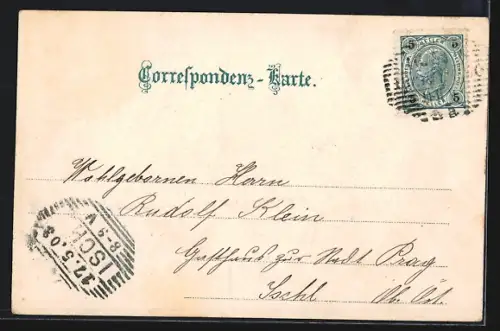 Correspondenz-Karte.
5 5
5
Wohlgebornen Herrn
Rudolf Klein
Gasthaus zur Stadt Prag
Ischl Ob. Öst.
ISCHL
17.5.03
8-9.V